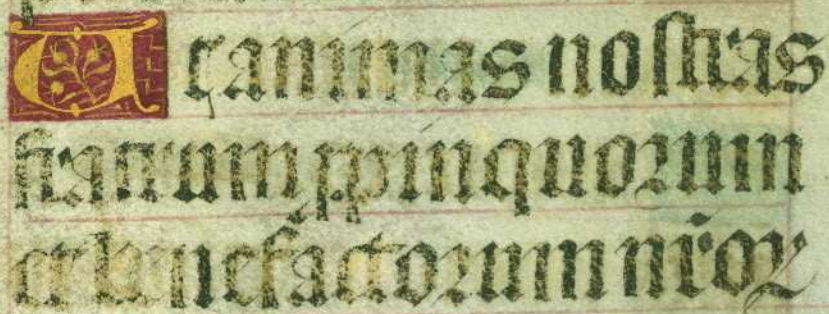 Ut animas nostras
fratrum ꝓpinquorum
et benefactorum nr̃oꝝ